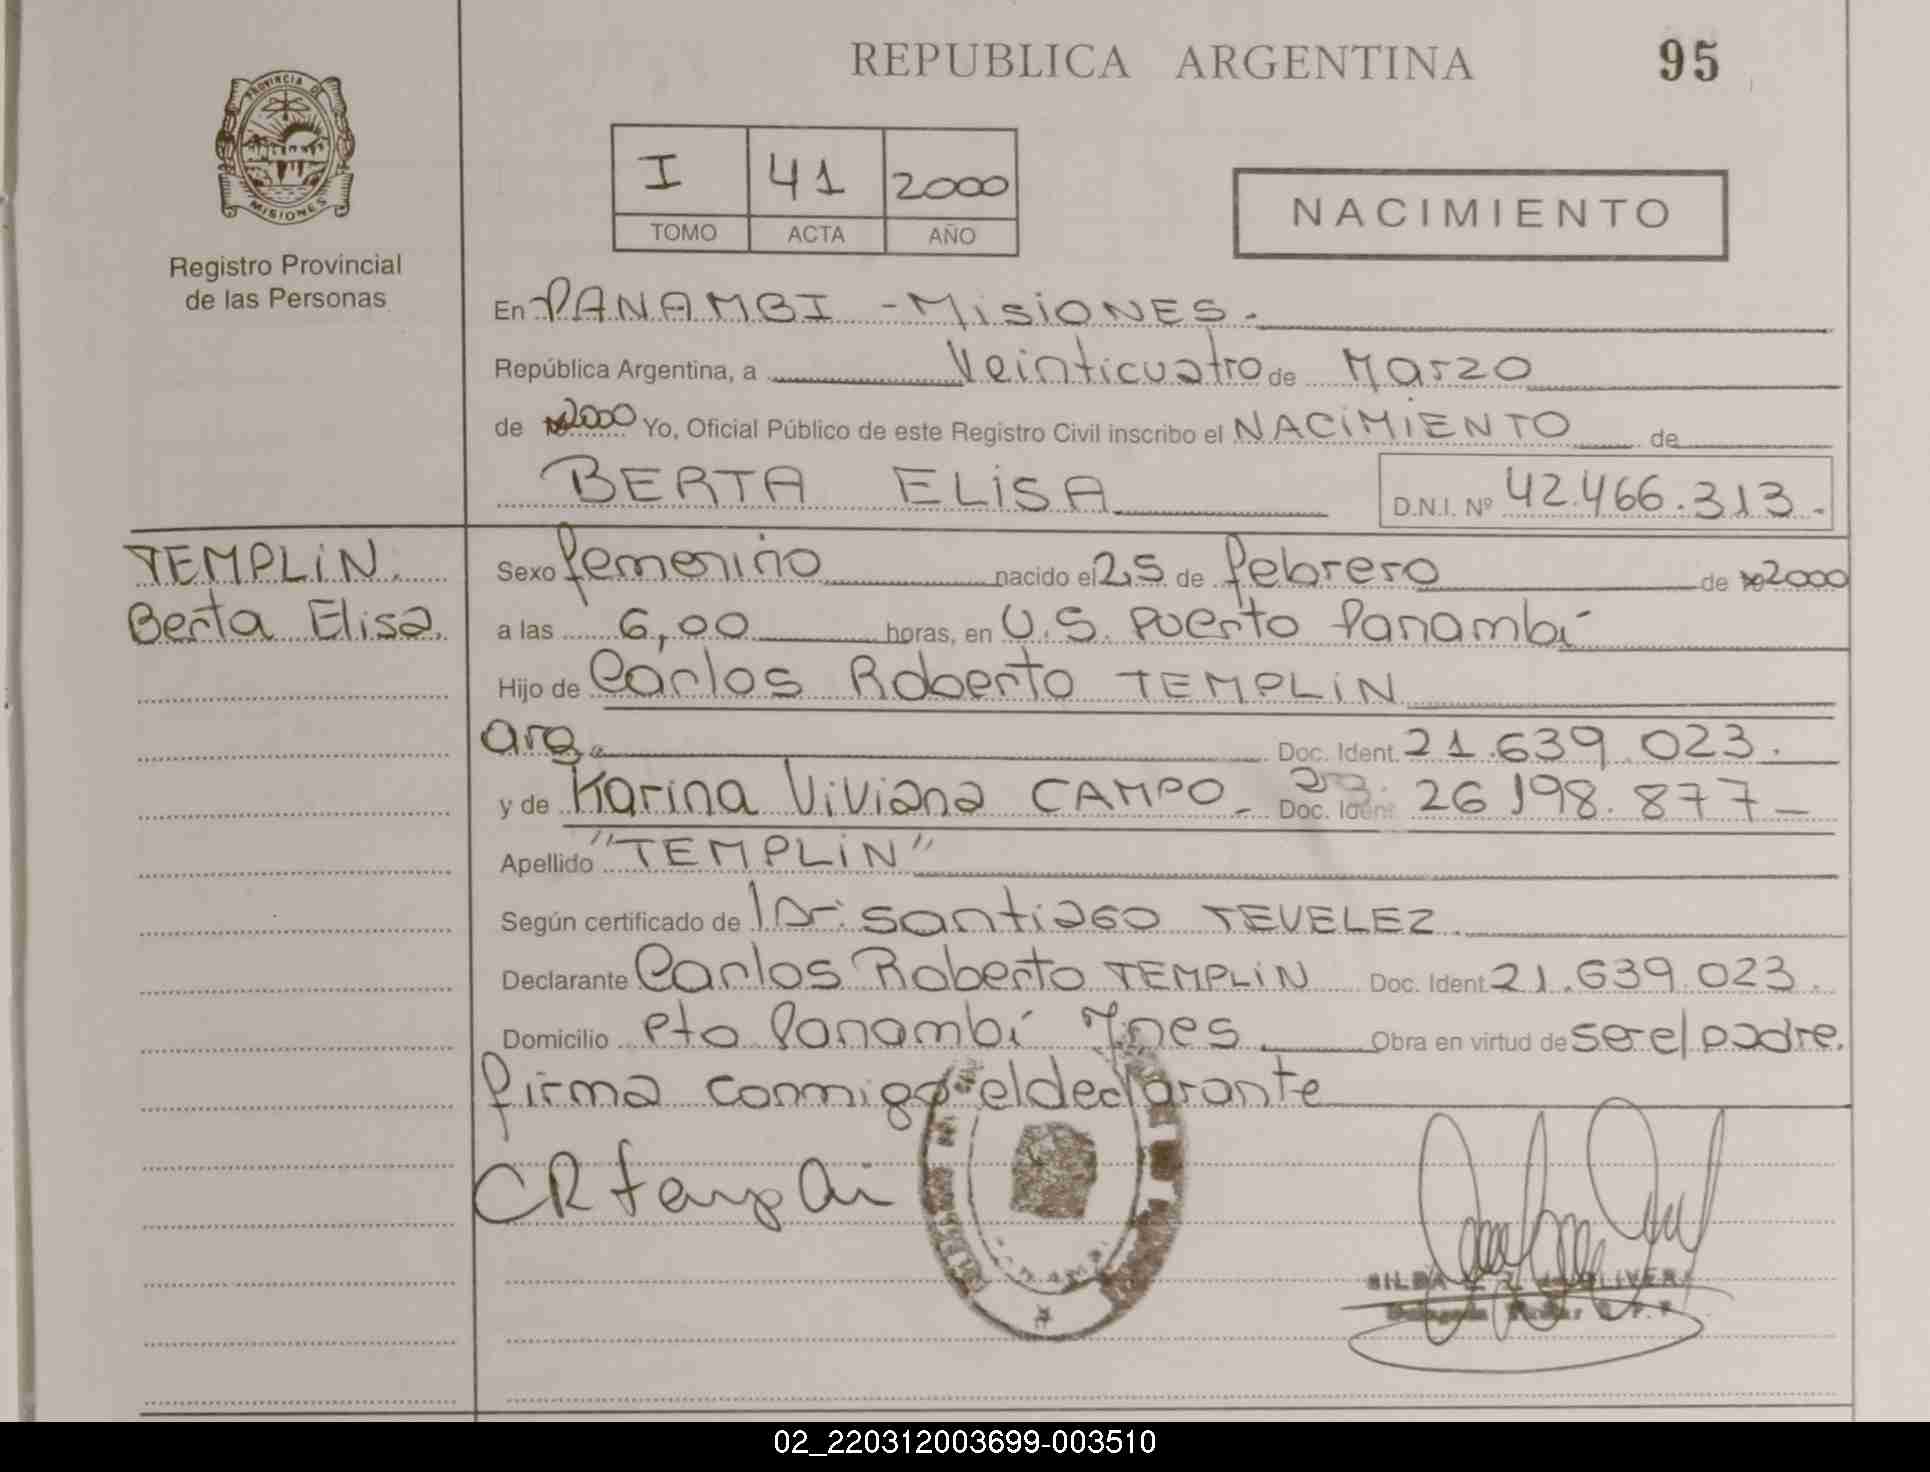 REPUBLICA ARGENTINA 95
PROVINCIA DE
MISIONES
Registro Provincial
de las Personas
I 41 2000
TOMO ACTA AÑO
NACIMIENTO
En PANAMBI - MISIONES.
República Argentina, a Veinticuatro de Marzo
de 2000 Yo, Oficial Público de este Registro Civil inscribo el NACIMIENTO de
BERTA ELISA D.N.I. Nº 42.466.313.-
TEMPLIN.
Berta Elisa.
Sexo femenino nacido el 25 de febrero de 2000
a las 6,00 horas, en U.S. Puerto Panambí
Hijo de Carlos Roberto TEMPLIN
arg. Doc. Ident. 21.639.023.
y de Karina Viviana CAMPO - Doc. Ident. 26.198.877-
Apellido "TEMPLIN"
Según certificado de Dr: Santiago TEVELEZ
Declarante Carlos Roberto TEMPLIN Doc. Ident. 21.639.023.
Domicilio Pto Panambí Mnes Obra en virtud de ser el padre.
firma conmigo el declarante
CR Templin
02_220312003699-003510